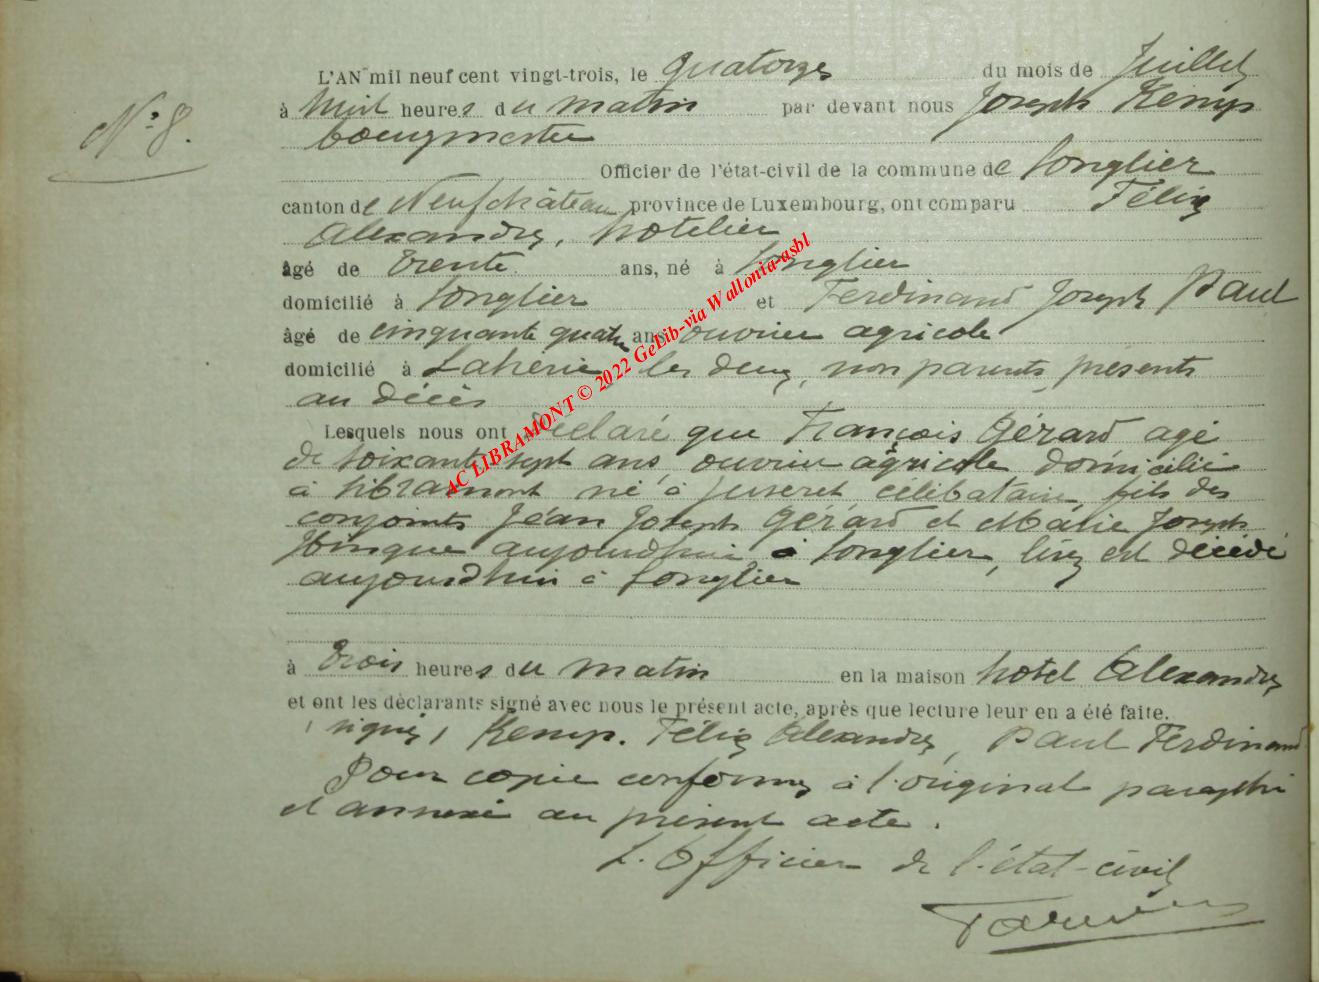 N° 8.
L'AN mil neuf cent vingt-trois, le quatorze du mois de Juillet
à huit heures du matin par devant nous Joseph Kemp
bourgmestre
Officier de l'état-civil de la commune de Longlier
canton de Neufchâteau province de Luxembourg, ont comparu Félix
Alexandre, hotelier
âgé de trente ans, né à Longlier
domicilié à Longlier et Ferdinand Joseph Paul
âgé de cinquante quatre ans ouvrier agricole
domicilié à Laherie les deux, non parents, présents
au décès
Lesquels nous ont déclaré que François Gérard agé
de soixante sept ans, ouvrier agricole domicilié
à Libramont né à Juseret célibataire, fils des
conjoints Jean Joseph Gérard et Marie Joseph
aujourdhui à Longlier, est décédé
aujourdhui à Longlier
à trois heures du matin en la maison hotel Alexandre
et ont les déclarants signé avec nous le présent acte, après que lecture leur en a été faite.
(signé) Kemp. Félix Alexandre, Paul Ferdinand
Pour copie conforme à l'original paraphé
et annexé au présent acte.
L'Officier de l'état-civil
AC LIBRAMONT © 2022 GeLib-via Wallonia-asbl